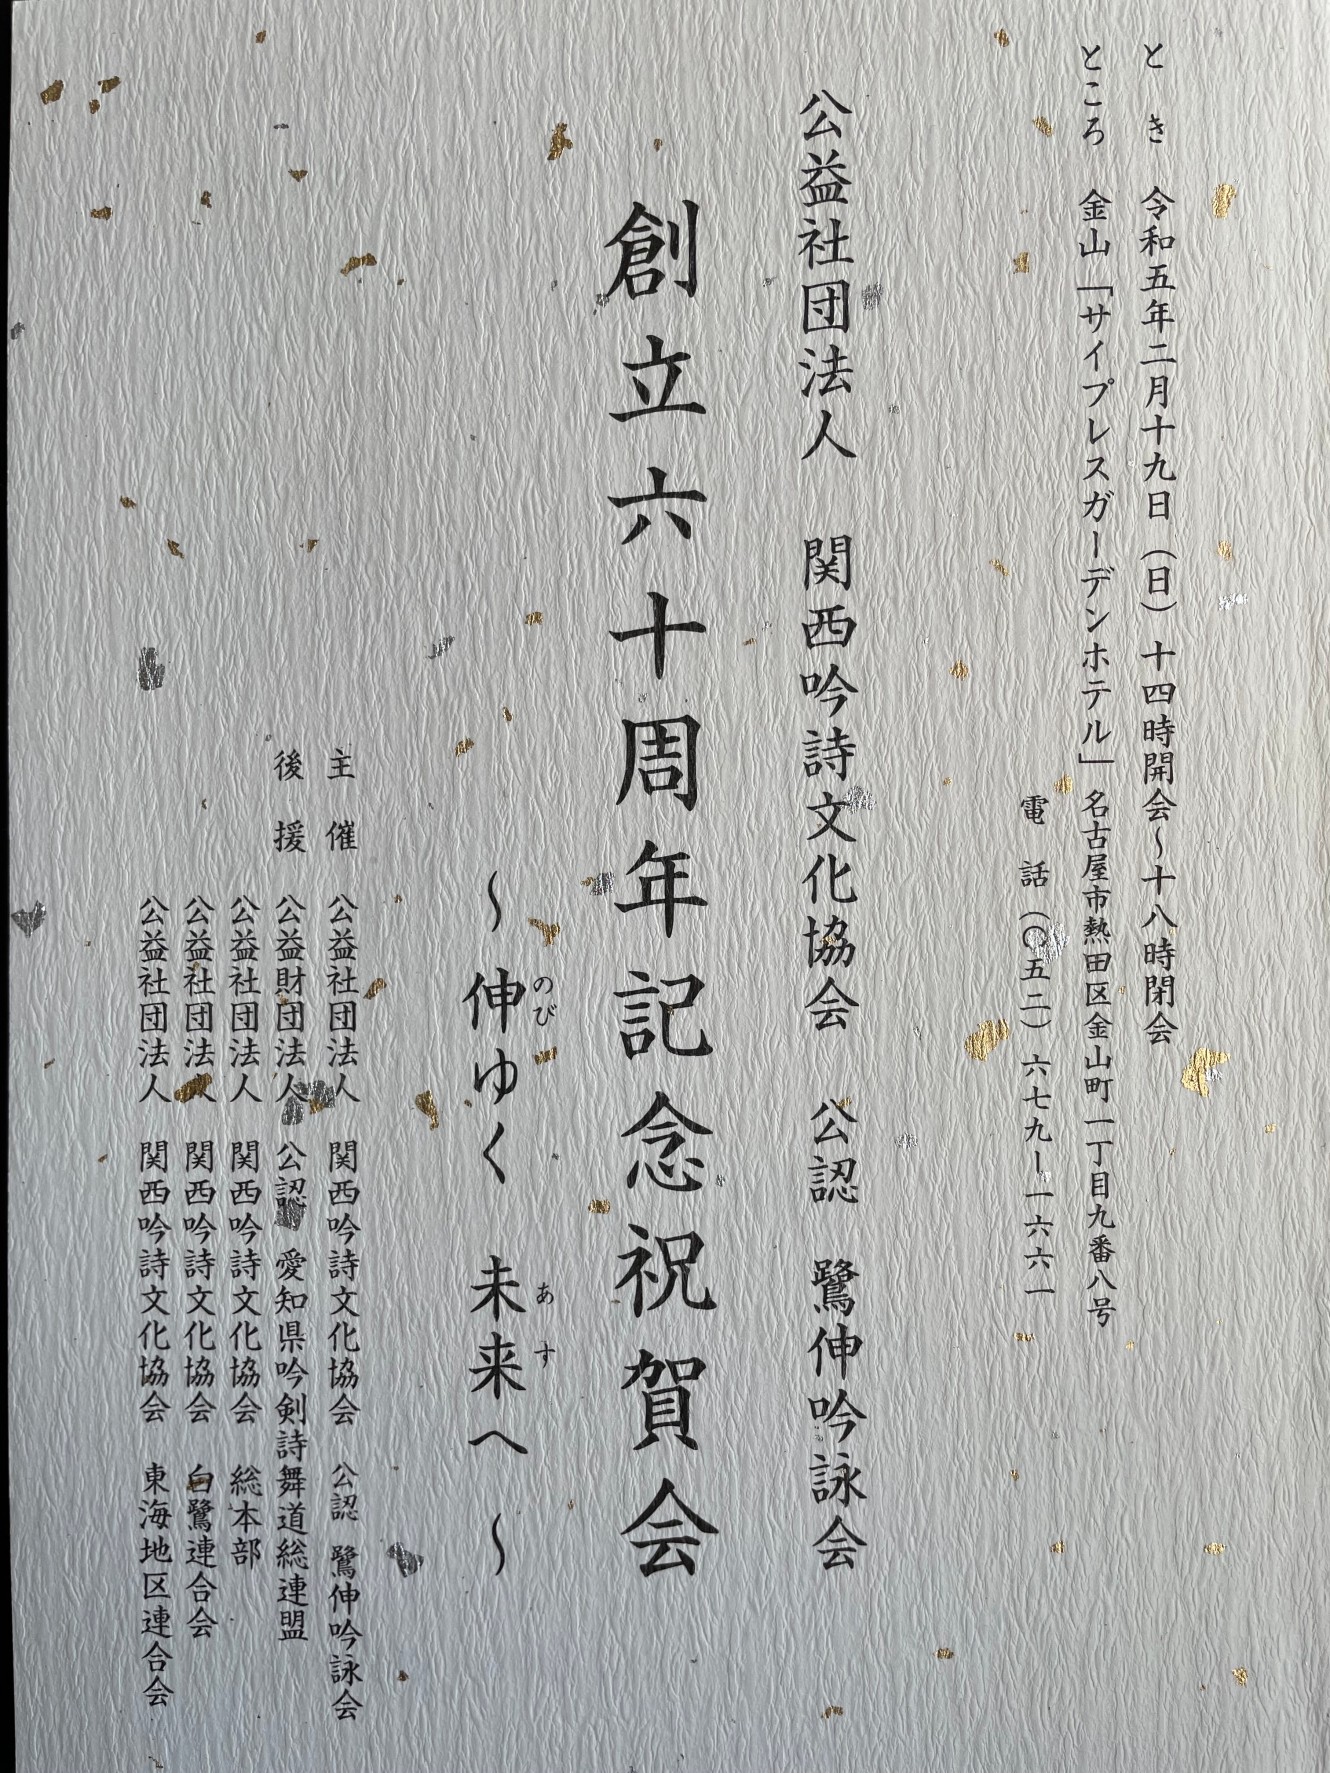 とき　令和五年二月十九日（日）十四時開会～十八時閉会
ところ　金山「サイプレスガーデンホテル」名古屋市熱田区金山町一丁目九番八号
電話（〇五二）六七九ー一六六一
公益社団法人　関西吟詩文化協会　公認　鷺伸吟詠会
創立六十周年記念祝賀会
のび　あす
～伸ゆく　未来へ～
主催　公益社団法人　関西吟詩文化協会　公認　鷺伸吟詠会
後援　公益財団法人　公認　愛知県吟剣詩舞道総連盟
公益社団法人　関西吟詩文化協会　総本部
公益社団法人　関西吟詩文化協会　白鷺連合会
公益社団法人　関西吟詩文化協会　東海地区連合会